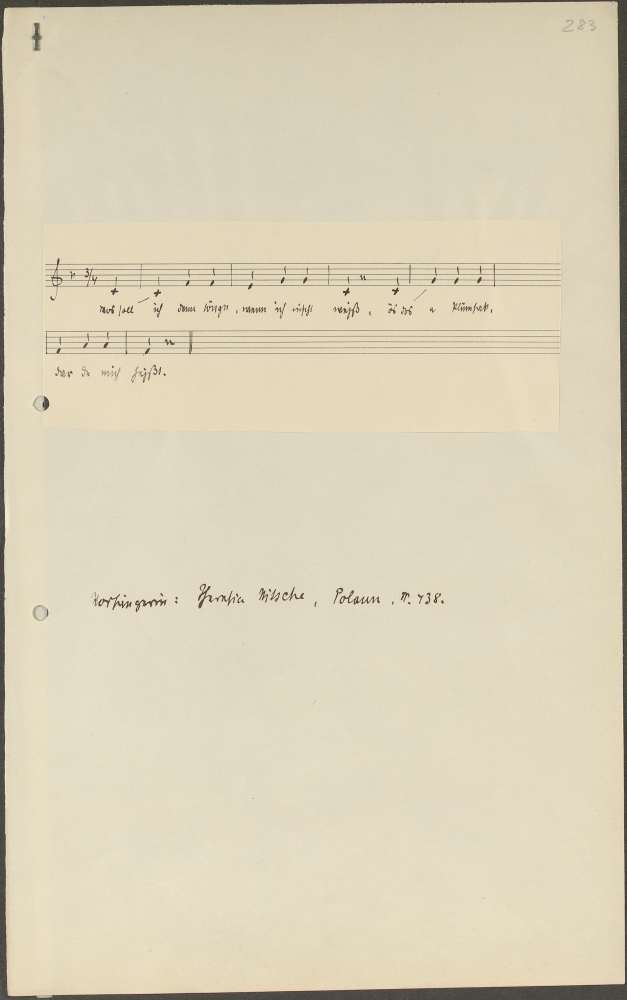 283
3/4
wos soll ich denn singn, wenn ich nischt weiß, is dos a
dar de mich hißt.
Vorsängerin: Theresia Nitsche, Polaun, N. 738.